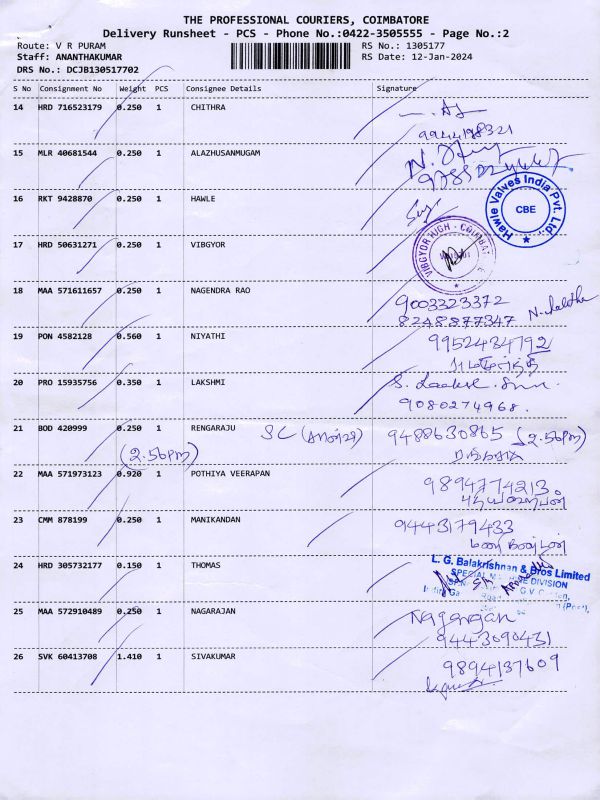 THE PROFESSIONAL COURIERS, COIMBATORE
Delivery Runsheet - PCS - Phone No.:0422-3505555 - Page No.:2
Route: V R PURAM RS No.: 1305177
Staff: ANANTHAKUMAR RS Date: 12-Jan-2024
DRS No.: DCJB130517702
S No Consignment No Weight PCS Consignee Details Signature
14 HRD 716523179 0.250 1 CHITHRA
9944198321
15 MLR 40681544 0.250 1 ALAZHUSANMUGAM
16 RKT 9428870 0.250 1 HAWLE
Hawle Valves India Pvt. Ltd.
CBE
17 HRD 50631271 0.250 1 VIBGYOR
VIBGYOR HIGH - COIMBAT
18 MAA 571611657 0.250 1 NAGENDRA RAO
9003323372
8248877347
19 PON 4582128 0.560 1 NIYATHI 9952434792
20 PRO 15935756 0.350 1 LAKSHMI
9080274968.
21 BOD 420999 0.250 1 RENGARAJU SC 9488630865 (2.56pm)
(2.56pm)
22 MAA 571973123 0.920 1 POTHIYA VEERAPAN 9894774213.
23 CMM 878199 0.250 1 MANIKANDAN 9443179433
24 HRD 305732177 0.150 1 THOMAS
L. G. Balakrishnan & Bros Limited
DIVISION
25 MAA 572910489 0.250 1 NAGARAJAN Nagarajan
9443090431
26 SVK 60413708 1.410 1 SIVAKUMAR 9894137609